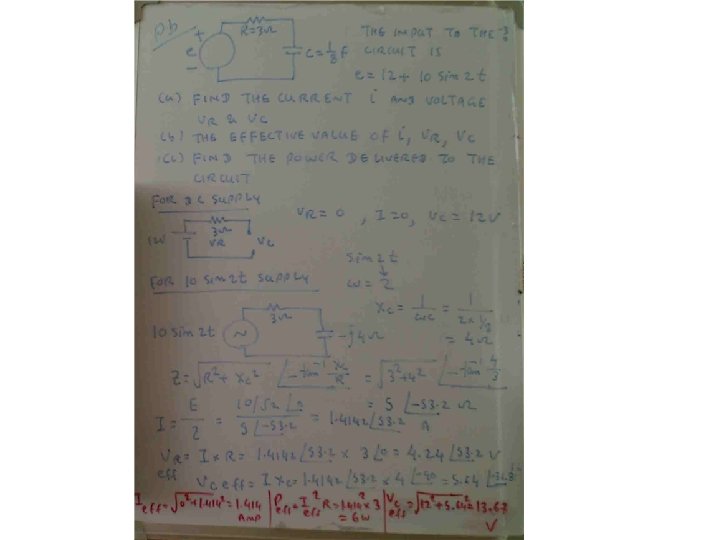 Pb
R=3Ω
THE INPUT TO THE
e
C=1/8 F
CIRCUIT IS
e = 12 + 10 sin 2t
(a) FIND THE CURRENT i AND VOLTAGE
VR & VC
(b) THE EFFECTIVE VALUE OF i, VR, VC
(c) FIND THE POWER DELIVERED TO THE
CIRCUIT
FOR DC SUPPLY
VR = 0, I = 0, VC = 12V
12V
3Ω
VR
VC
sin 2t
FOR 10 sin 2t SUPPLY
ω = 2
XC = 1/ωC = 1/(2×1/8)
3Ω
10 sin 2t
~
-j4Ω
= 4Ω
Z = √R²+XC² ∠-tan⁻¹ XC/R = √3²+4² ∠-tan⁻¹ 4/3
= 5 ∠-53.2 Ω
I = E/Z = 10/√2 ∠0 / 5∠-53.2 = 1.4142 ∠53.2 A
VR eff = I×R = 1.4142 ∠53.2 × 3∠0 = 4.24 ∠53.2 V
VC eff = I XC = 1.4142 ∠53.2 × 4 ∠-90 = 5.64 ∠-36.8
I eff = √0²+1.414² = 1.414 AMP
P eff = I² eff R = 1.414² × 3 = 6W
VC eff = √12²+5.64² = 13.67 V